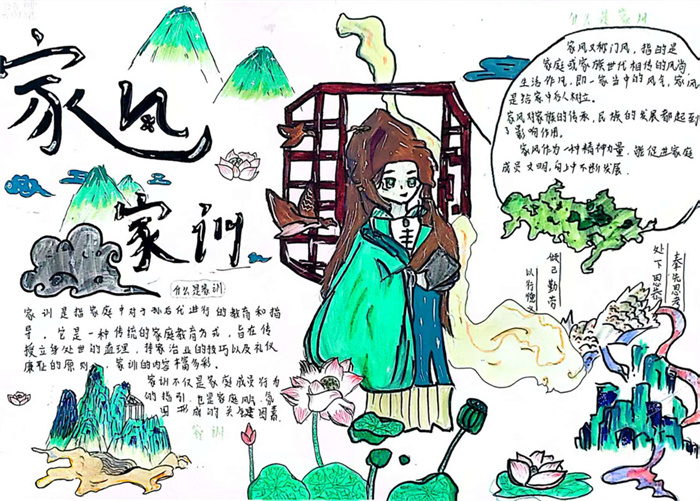 家风
家训
什么是家训
家训是指家庭中对子孙后代进行的教育和指
导。它是一种传统的家庭教育方式，旨在传
授立身处世的道理、持家治业的技巧以及礼仪
廉耻的原则。家训的内容丰富多彩。
家训不仅是家庭成员行为
的指引，也是家庭风、家
因形成的关键因素
家训
什么是家训
家风又称门风，指的是
家庭或家族世代相传的风尚，
生活作风，即一家当中的风气，家风
是给家中后人树立。
家风对家族的传承，民族的发展都起到
了影响作用。
家风作为一种精神力量，能促进家庭
成员文明，向上中不断发展。
奉先思孝
处下思恭
做己勤劳
以行德义